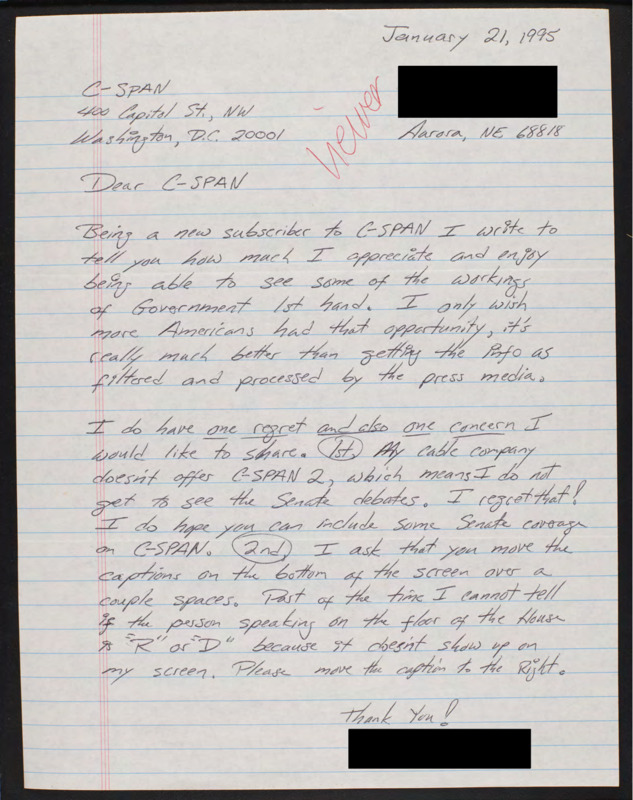 January 21, 1995
C-SPAN
400 Capitol St., NW
Washington, D.C. 20001
viewer
Aurora, NE 68818
Dear C-SPAN
Being a new subscriber to C-SPAN I write to
tell you how much I appreciate and enjoy
being able to see some of the workings
of Government 1st hand. I only wish
more Americans had that opportunity, it's
really much better than getting the info as
filtered and processed by the press media.
I do have one regret and also one concern I
would like to share. 1st, My cable company
doesn't offer C-SPAN 2, which means I do not
get to see the Senate debates. I regret that!
I do hope you can include some Senate coverage
on C-SPAN. 2nd, I ask that you move the
captions on the bottom of the screen over a
couple spaces. Part of the time I cannot tell
if the person speaking on the floor of the House
is "R" or "D" because it doesn't show up on
my screen. Please move the caption to the Right.
Thank You!